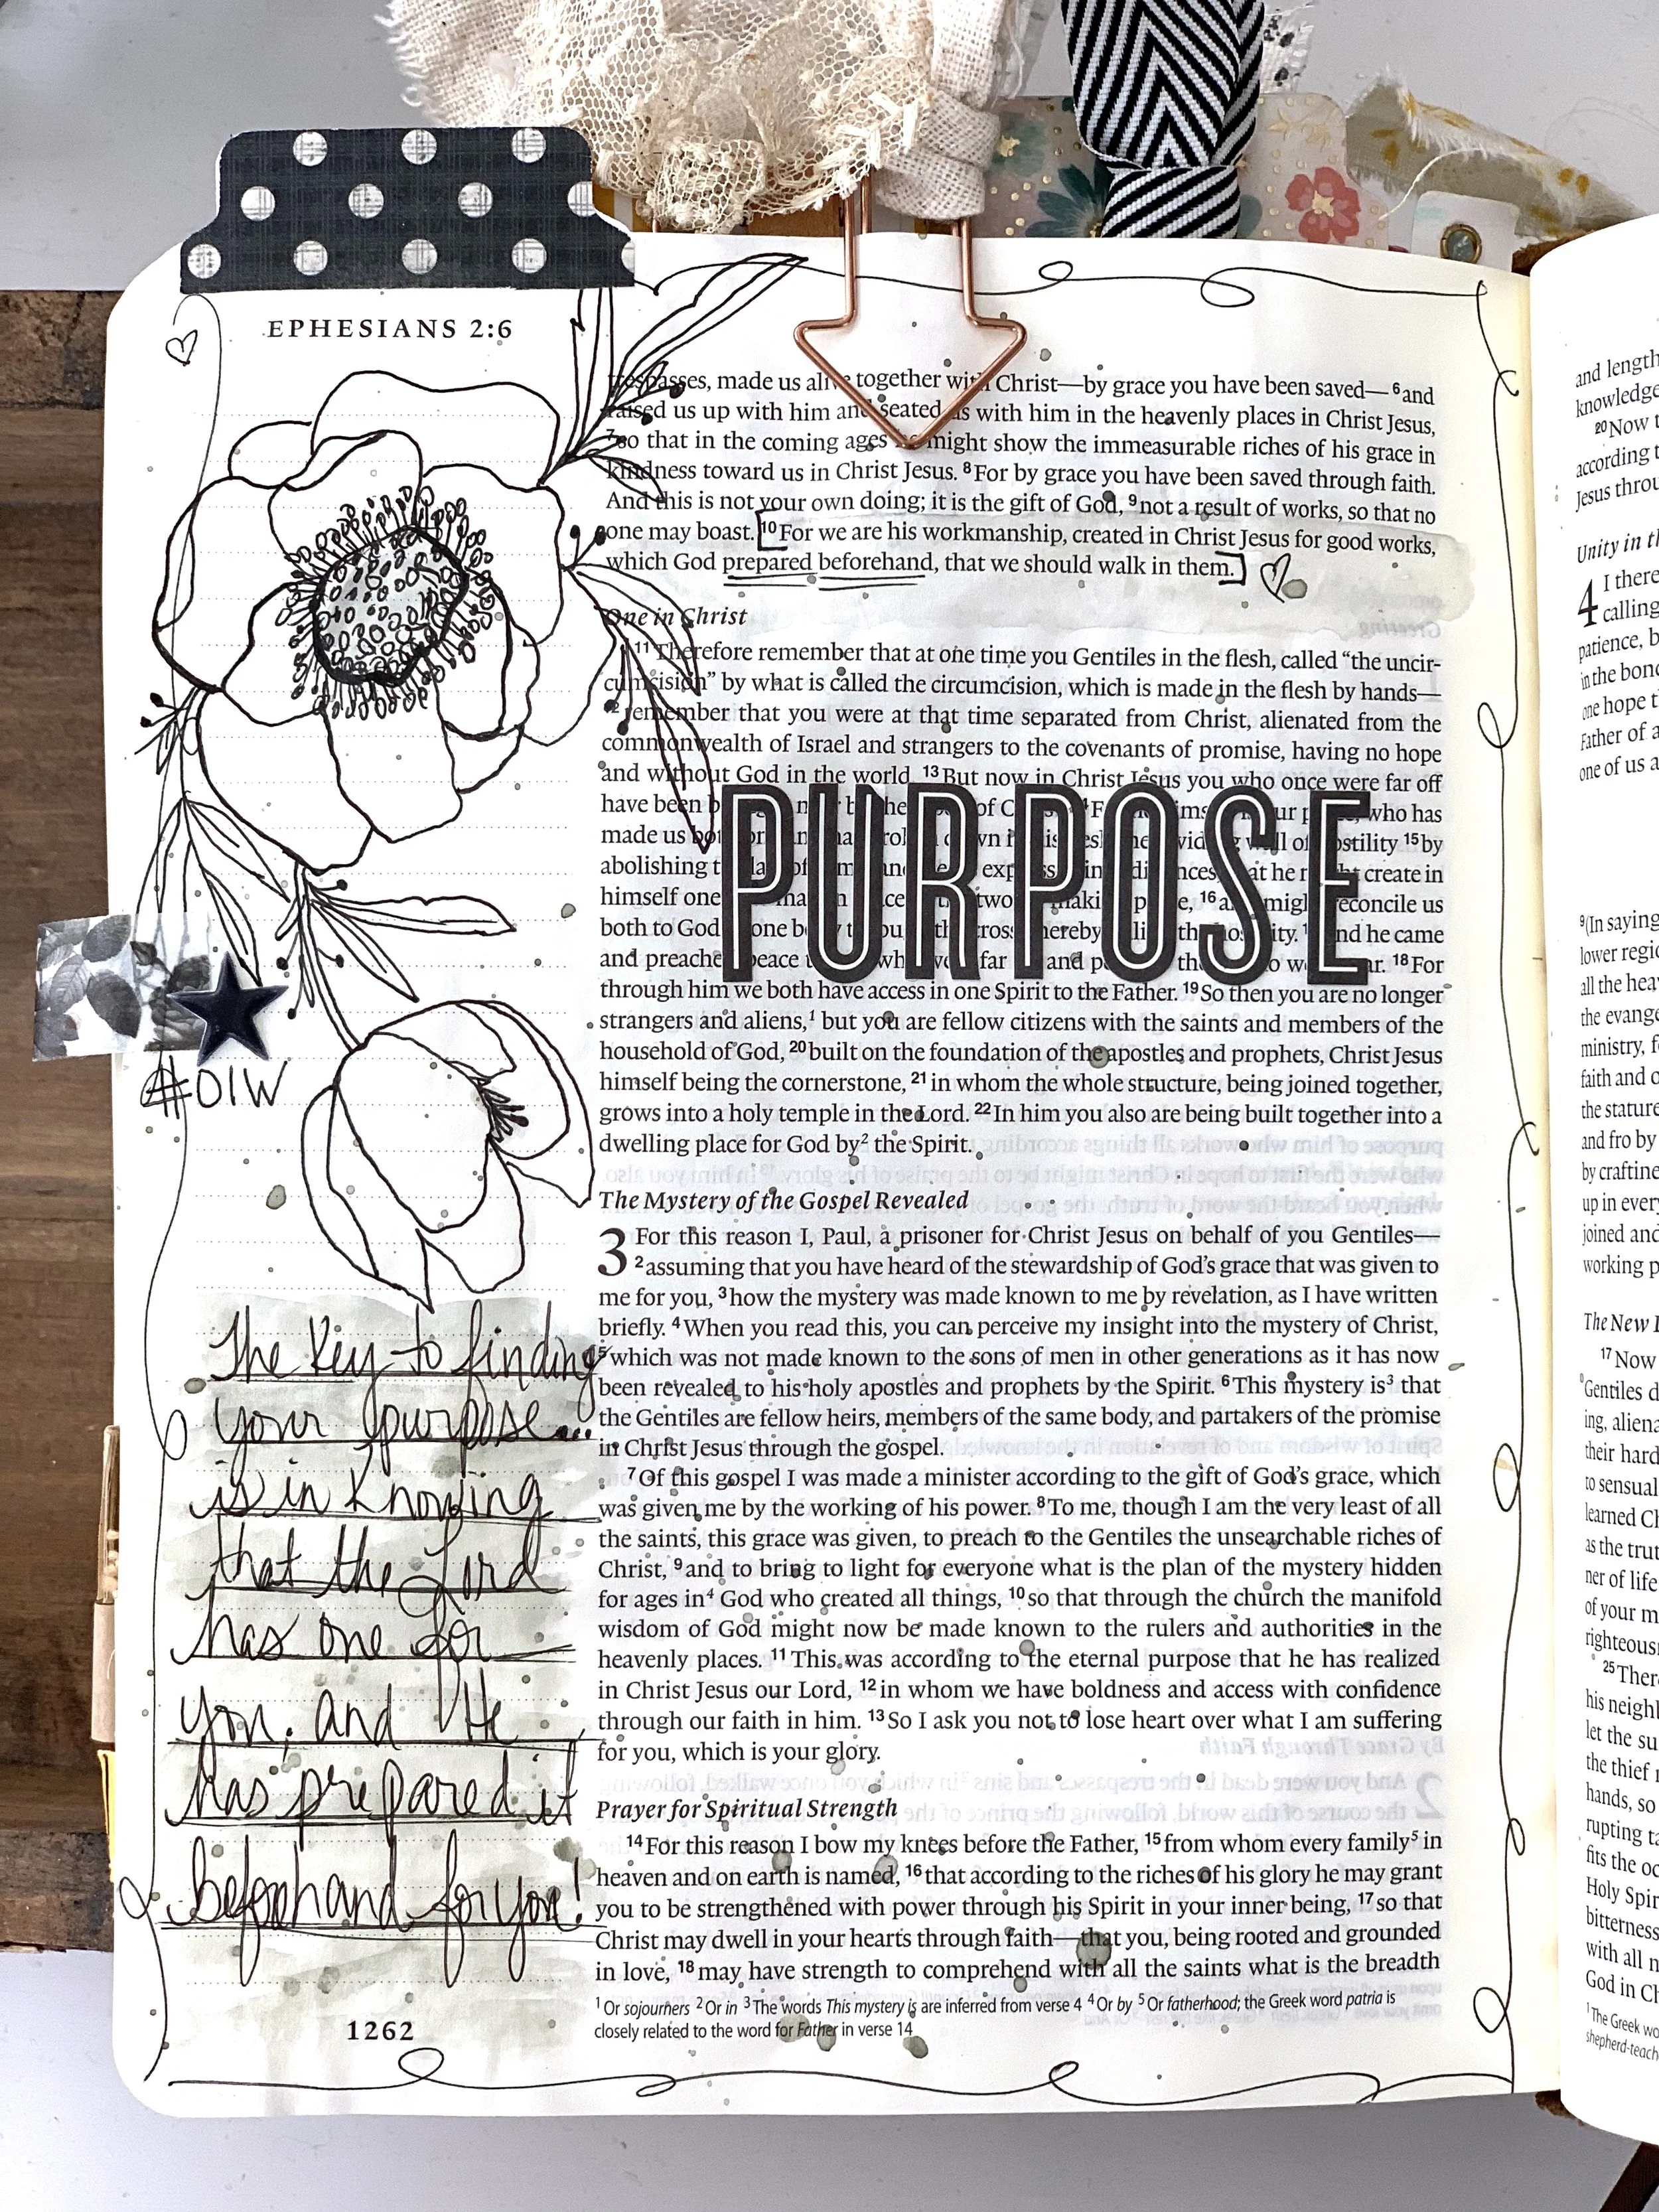 EPHESIANS 2:6
trespasses, made us alive together with Christ—by grace you have been saved— 6 and
raised us up with him and seated us with him in the heavenly places in Christ Jesus,
7 so that in the coming ages he might show the immeasurable riches of his grace in
kindness toward us in Christ Jesus. 8 For by grace you have been saved through faith.
And this is not your own doing; it is the gift of God, 9 not a result of works, so that no
one may boast. 10 For we are his workmanship, created in Christ Jesus for good works,
which God prepared beforehand, that we should walk in them.
One in Christ
11 Therefore remember that at one time you Gentiles in the flesh, called “the uncir-
cumcision” by what is called the circumcision, which is made in the flesh by hands—
12 remember that you were at that time separated from Christ, alienated from the
commonwealth of Israel and strangers to the covenants of promise, having no hope
and without God in the world. 13 But now in Christ Jesus you who once were far off
have been of who has
PURPOSE
made us hostility 15 by
abolishing create in
himself one two 16 reconcile us
both to God one and he came
and preached peace far and 18 For
through him we both have access in one Spirit to the Father. 19 So then you are no longer
strangers and aliens,1 but you are fellow citizens with the saints and members of the
household of God, 20 built on the foundation of the apostles and prophets, Christ Jesus
himself being the cornerstone, 21 in whom the whole structure, being joined together,
grows into a holy temple in the Lord. 22 In him you also are being built together into a
dwelling place for God by2 the Spirit.
The Mystery of the Gospel Revealed
3 For this reason I, Paul, a prisoner for Christ Jesus on behalf of you Gentiles—
2 assuming that you have heard of the stewardship of God’s grace that was given to
me for you, 3 how the mystery was made known to me by revelation, as I have written
briefly. 4 When you read this, you can perceive my insight into the mystery of Christ,
5 which was not made known to the sons of men in other generations as it has now
been revealed to his holy apostles and prophets by the Spirit. 6 This mystery is3 that
the Gentiles are fellow heirs, members of the same body, and partakers of the promise
in Christ Jesus through the gospel.
7 Of this gospel I was made a minister according to the gift of God’s grace, which
was given me by the working of his power. 8 To me, though I am the very least of all
the saints, this grace was given, to preach to the Gentiles the unsearchable riches of
Christ, 9 and to bring to light for everyone what is the plan of the mystery hidden
for ages in4 God who created all things, 10 so that through the church the manifold
wisdom of God might now be made known to the rulers and authorities in the
heavenly places. 11 This was according to the eternal purpose that he has realized
in Christ Jesus our Lord, 12 in whom we have boldness and access with confidence
through our faith in him. 13 So I ask you not to lose heart over what I am suffering
for you, which is your glory.
Prayer for Spiritual Strength
14 For this reason I bow my knees before the Father, 15 from whom every family5 in
heaven and on earth is named, 16 that according to the riches of his glory he may grant
you to be strengthened with power through his Spirit in your inner being, 17 so that
Christ may dwell in your hearts through faith—that you, being rooted and grounded
in love, 18 may have strength to comprehend with all the saints what is the breadth
1 Or sojourners 2 Or in 3 The words This mystery is are inferred from verse 4 4 Or by 5 Or fatherhood; the Greek word patria is
closely related to the word for Father in verse 14
#OIW
The key to finding
your purpose...
is in knowing
that the Lord
has one for
you, and He
has prepared it
beforehand for you!
1262
and length
knowledge
20 Now
according
Jesus
Unity in
4 I there
calling
patience,
in the
one hope
Father of
one of us
9 (In saying
lower
all the
the
ministry,
faith and
the stature
and fro by
by
up in every
joined and
working
The New
17 Now
Gentiles
ing,
their hard
to
learned
as the
ner of life
of your
25
his
let the
the thief
hands, so
rupting
fits the
Holy
bitterness
with all
God in
1 The Greek